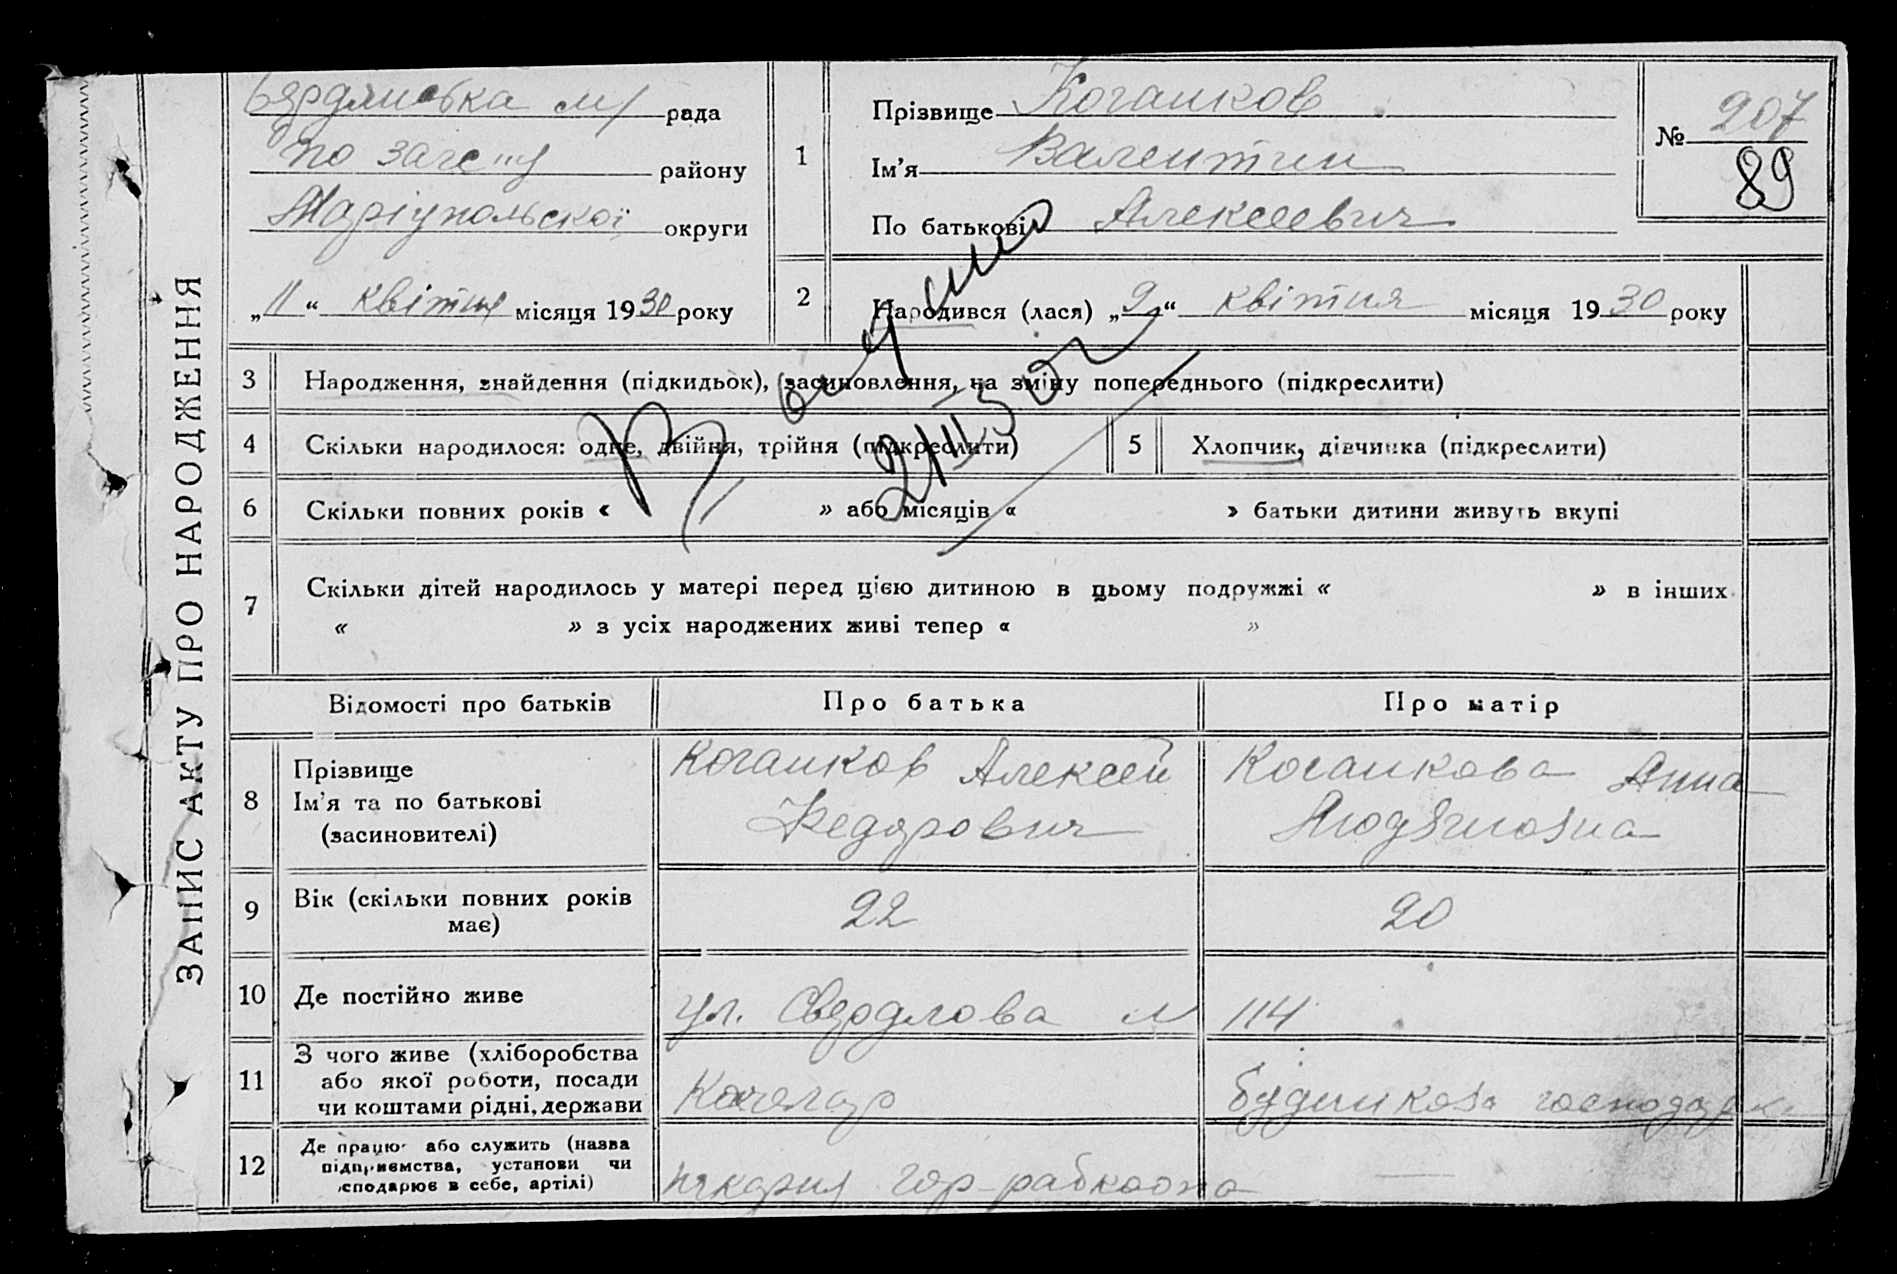 ЗАПИС АКТУ ПРО НАРОДЖЕННЯ
Бердянська м/ рада
по загсу району
Маріупольскої округи
„11“ квітня місяця 1930 року
1
Прізвище
Ім’я Валентин
По батькові Алексеевич
№ 207
89
2
Народився (лася) „9“ квітня місяця 1930 року
3 Народження, знайдення (підкидьок), засиновлення, на зміну попереднього (підкреслити)
4 Скільки народилося: одне, двійня, трійня (підкреслити)
5 Хлопчик, дівчинка (підкреслити)
6 Скільки повних років « » або місяців « » батьки дитини живуть вкупі
7 Скільки дітей народилось у матері перед цією дитиною в цьому подружжі « » в інших
« » з усіх народжених живі тепер « »
Відомості про батьків Про батька Про матір
8
Прізвище
Ім’я та по батькові
(засиновителі)
Алексей
Федорович
Анна
9
Вік (скільки повних років
має)
22
20
10 Де постійно живе
ул. Свердлова № 114
11
З чого живе (хліборобства
або якої роботи, посади
чи коштами рідні, держави
12
Де працює або служить (назва
підприємства, установи чи
господарює в себе, артілі)